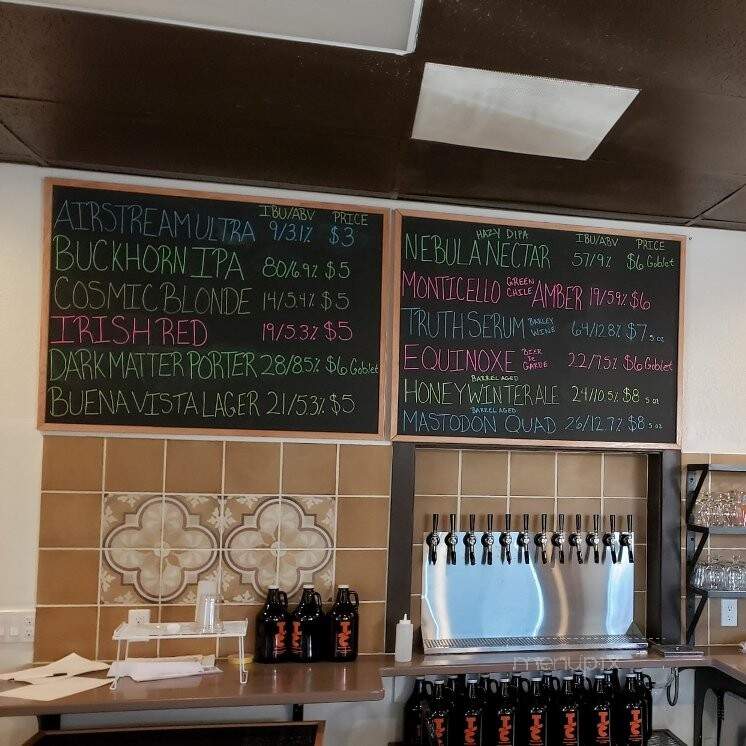 IBU/ABV PRICE
AIRSTREAM ULTRA 9/3.1% $3
BUCKHORN IPA 80/6.9% $5
COSMIC BLONDE 14/5.4% $5
IRISH RED 19/5.3% $5
DARK MATTER PORTER 28/8.5% $6 Goblet
BUENA VISTA LAGER 21/5.3% $5
HAZY DIPA IBU/ABV PRICE
NEBULA NECTAR 57/9% $6 Goblet
MONTICELLO GREEN CHILE AMBER 19/5.9% $6
TRUTH SERUM BARLEY WINE 64/12.8% $7 5 oz
EQUINOXE BIER DE GARDE 22/7.5% $6 Goblet
BARREL AGED
HONEY WINTER ALE 24/10.5% $8 5 oz
BARREL AGED
MASTODON QUAD 26/12.7% $8 5 oz
menupix